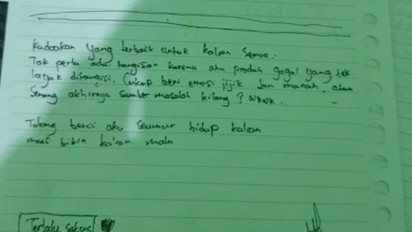 Kudoakan yang terbaik untuk kalian semua.
Tak perlu ada tangisan karena aku produk gagal yang tak
layak ditangisi. Cukup beri emosi jijik dan marah, atau
senang akhirnya sumber masalah hilang? Wkwk.
Tolong benci aku seumur hidup kalian
maaf bikin kalian malu
Terlalu sakras